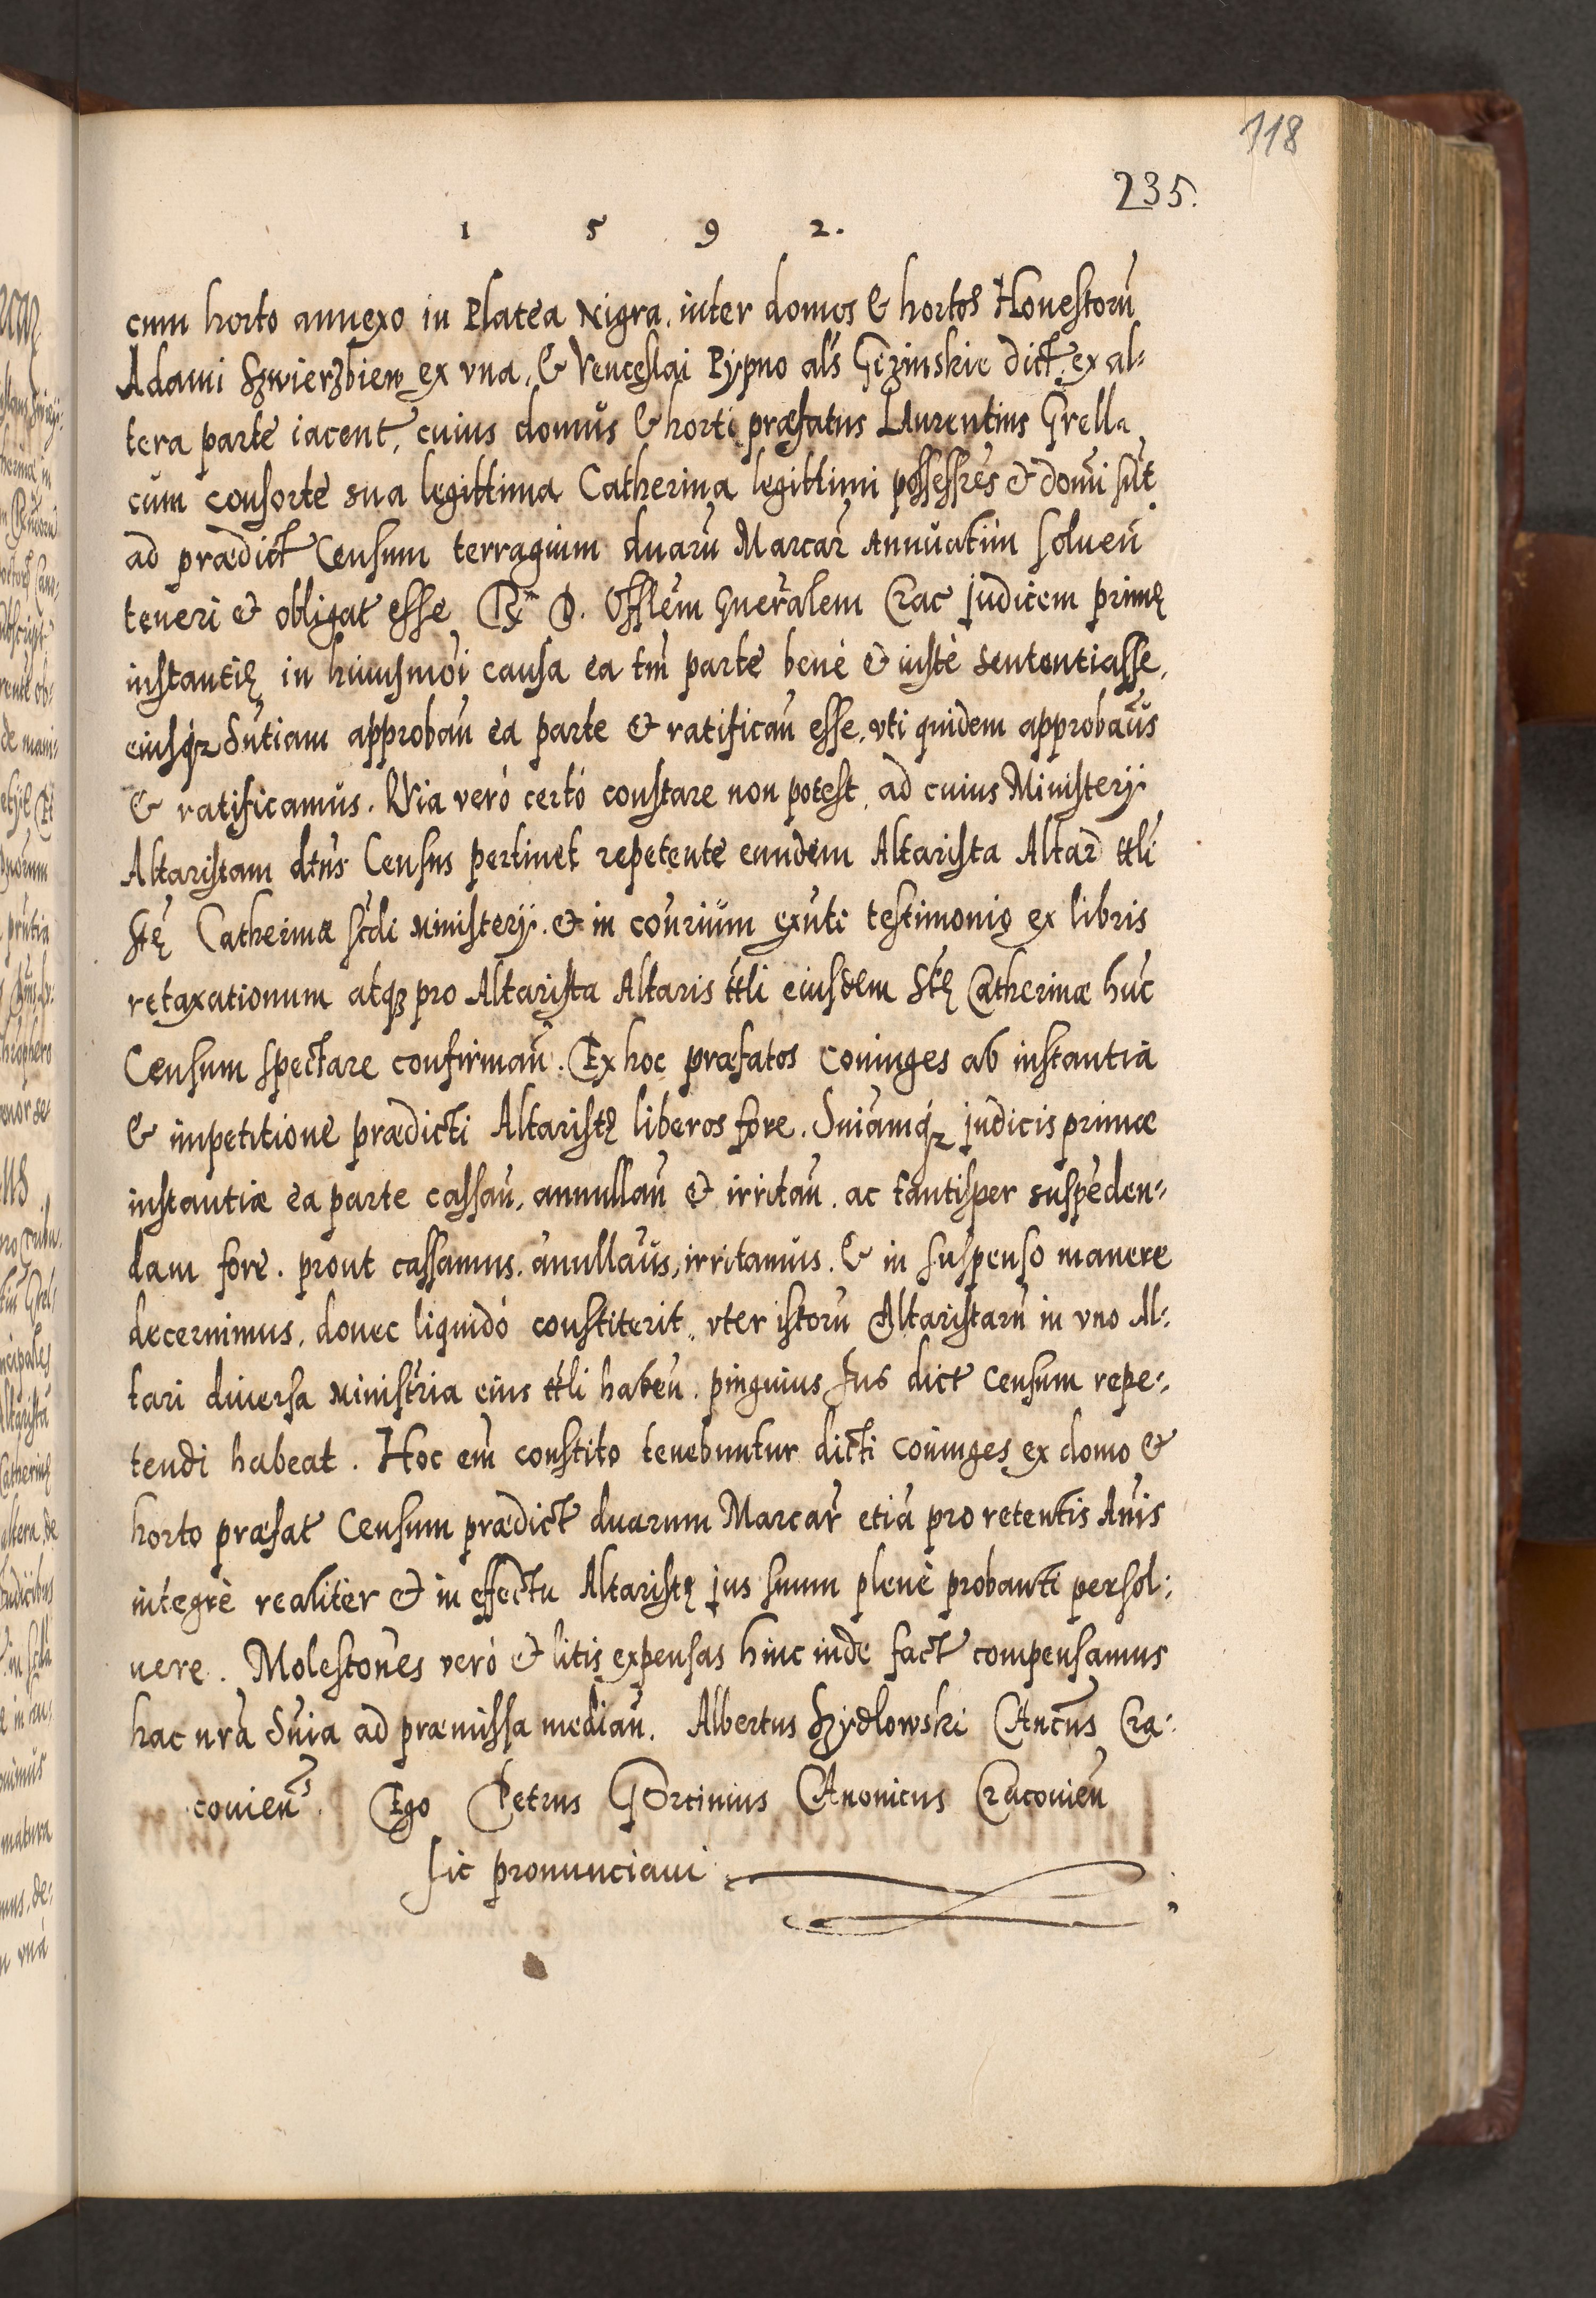 118
235.
1 5 9 2.
cum horto annexo in Platea Nigra, inter domos & hortos Honestorũ
Adami Szwierzbien ex vna, & Venceslai Pÿpno aľs Gezinskie dict, ex al-
tera parte iacent, cuius domus & horti præfatus Laurentius Grella
cum consorte sua legittima Catherina legittimi possessřes & domi sũt
ad prædict Censum terragium duarũ Marcař Annuatim soluen̄
teneri & obligat esse Rx D. Offlem Gneřalem Crac judicem primę
instantię in huiusmoi causa ea tm̄ parte benè & iustè sententiasse,
eiusq́ꝫ Sn̄tiam approban̄ ea parte & ratifican̄ esse, vti quidem approbam̄us
& ratificamus. Quia verò certò constare non potest, ad cuius Ministerÿ
Altaristam dtus Census pertinet repetente eundem Altarista Altar ttli
Stę Catherinæ scdi Ministerÿ. & in con̄rium exn̄ti testimonio ex libris
retaxationum atqꝫ pro Altarista Altaris ttli eiusdem Stę Catherinæ huc
Censum spectare confirman̄. Ex hoc præfatos Coniuges ab instantia
& impetitione prædicti Altaristę liberos fore. Sniamq́ꝫ judicis primæ
instantiæ ea parte cassan̄, annullan̄ & irritan̄, ac tantisper suspēden-
dam fore. prout cassamus, anullam̄us, irritamus, & in suspenso manere
decernimus, donec liquidò constiterit, vter istorũ Altaristarũ in vno Al-
tari diuersa Ministria eius ttli haben̄. pinguius Jus dict Censum repe-
tendi habeat. Hoc em̄ constito tenebuntur dicti Coniuges ex domo &
horto præfat Censum prædict duarum Marcař etiā pro retentis Anis
integrè realiter & in effectu Altaristę jus suum plenè probanti persol-
uere. Molestones verò & litis expensas hinc inde fact compensamus
hac nr̄a Sn̄ia ad præmissa median̄. Albertus Szÿdlowski CAncus Cra-
couien̄s. Ego Petrus GOrcinius CAnonicus Cracouien̄
sic pronunciaui